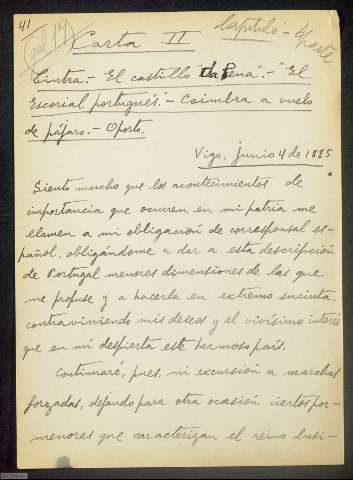 41
Carta II
Capítulo - 4ª parte
Cintra.- El castillo "da Pena".- "El
Escorial portugués.- Coimbra a vuelo
de pájaro.- Oporto.
Vigo, junio 4 de 1885
Siento mucho que los acontecimientos de
importancia que ocurren en mi patria me
llamen a mi obligación de corresponsal es-
pañol, obligándome a dar a esta descripción
de Portugal menores dimensiones de las que
me propuse y a hacerla en extremo sucinta,
contraviniendo mis deseos y el vivísimo interés
que en mí despierta este hermoso país.
Continuaré, pues, mi excursión a marchas
forzadas, dejando para otra ocasión ciertos por-
menores que caracterizan el reino lusi-